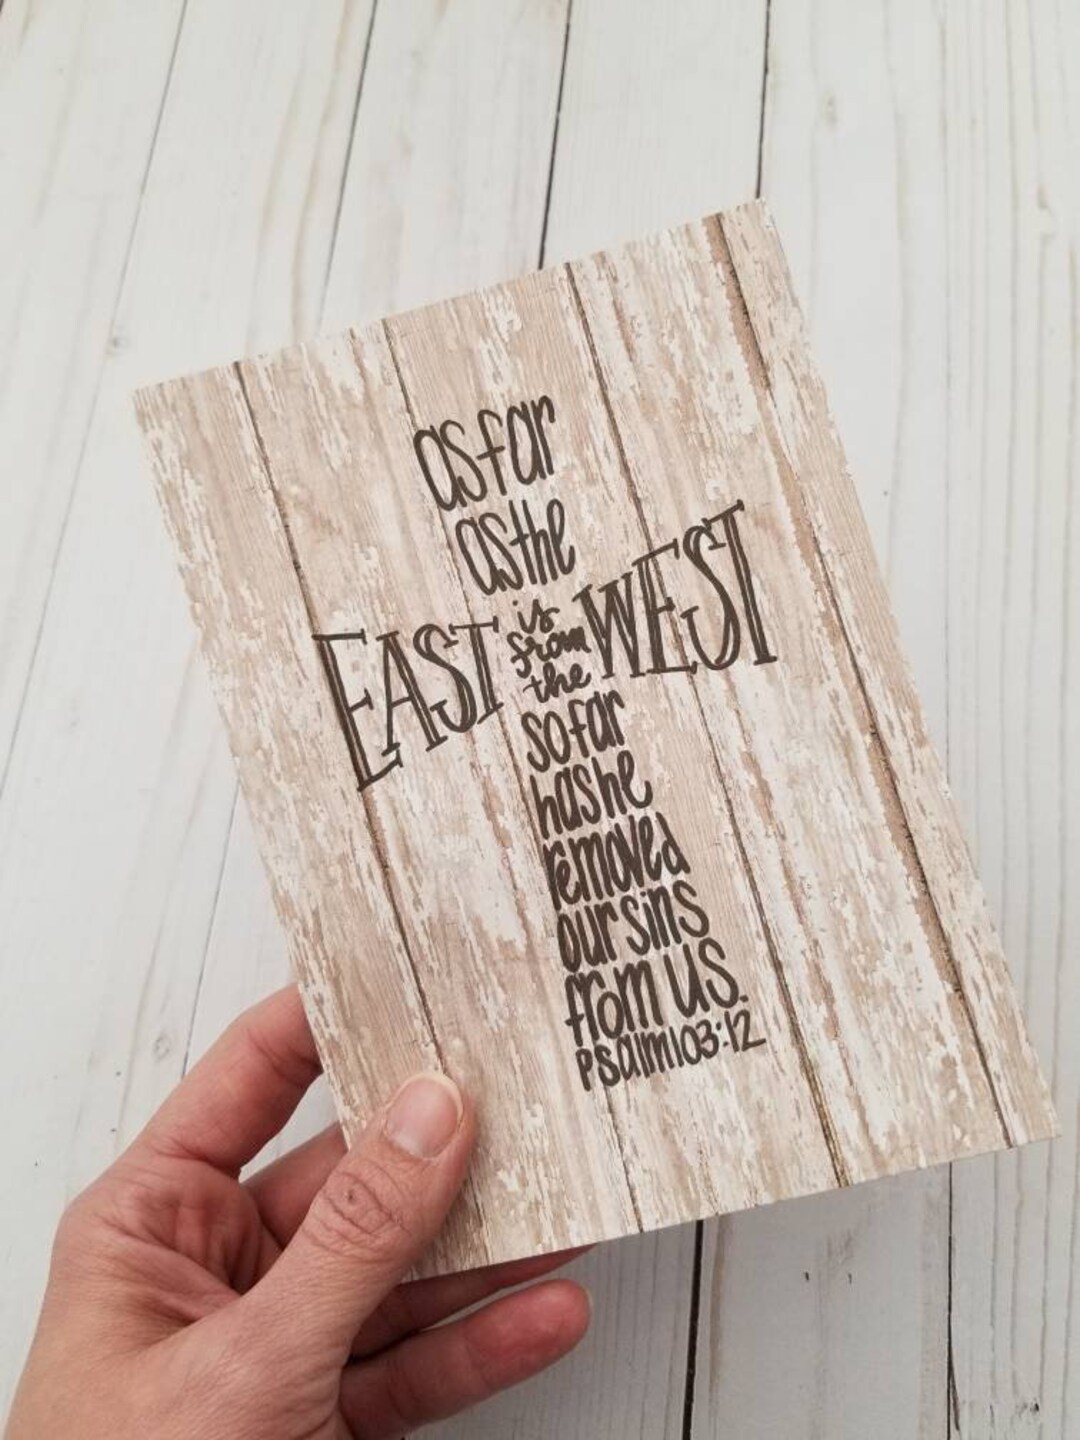 as far
as the
EAST is from the WEST
so far
has he
removed
our sins
from us.
Psalm 103:12